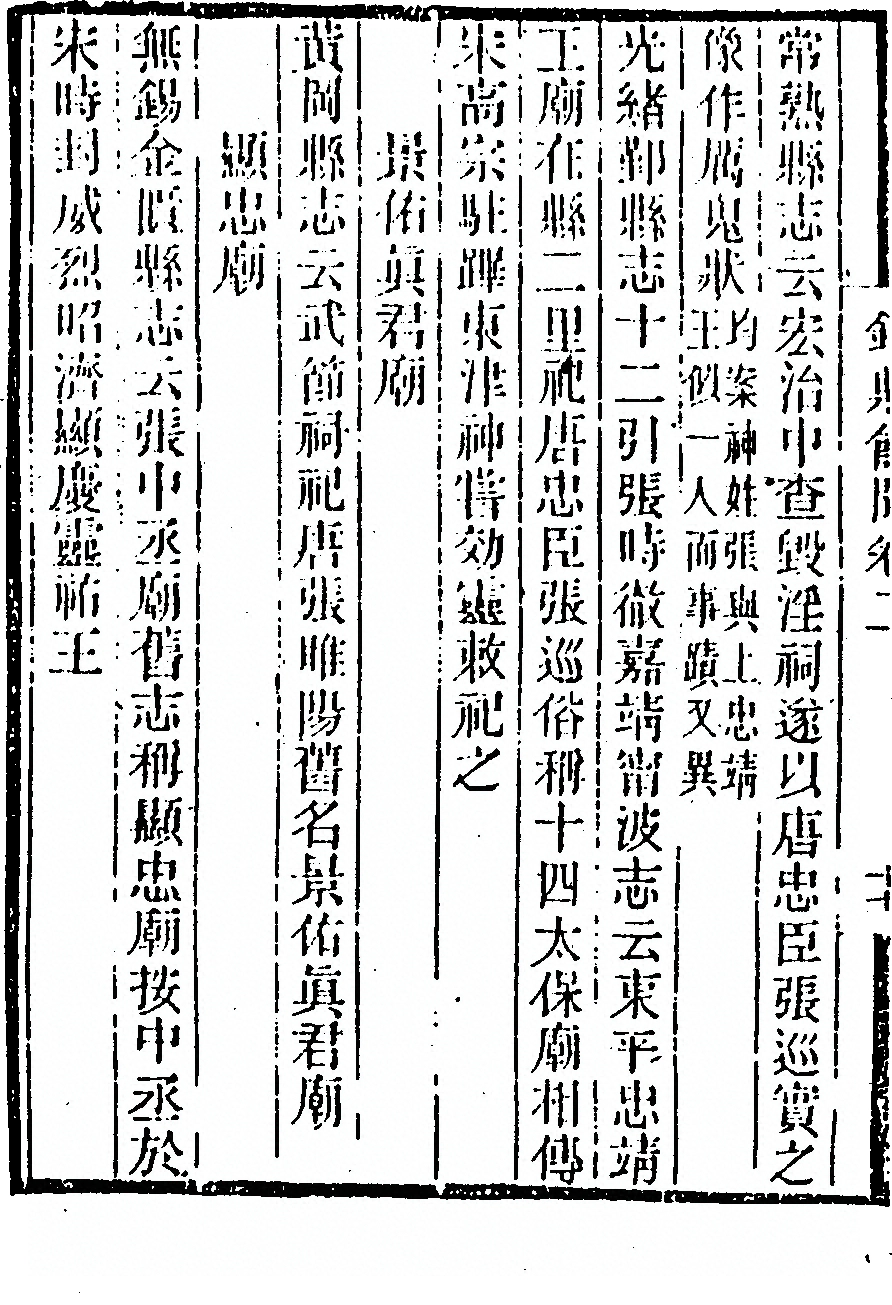 常熟縣志云宏治中查毀淫祠遂以唐忠臣張巡實之
像作厲鬼狀均案神姓張與上忠靖王似一人而事蹟又異
光緒鄞縣志十二引張時徹嘉靖甯波志云東平忠靖
王廟在縣二里祀唐忠臣張巡俗稱十四太保廟相傳
宋高宗駐蹕東津神嘗効靈敕祀之
景佑眞君廟
黃岡縣志云武節祠祀唐張睢陽舊名景佑眞君廟
顯忠廟
無錫金匱縣志云張中丞廟舊志稱顯忠廟按中丞於
宋時封威烈昭濟顯慶靈祐王